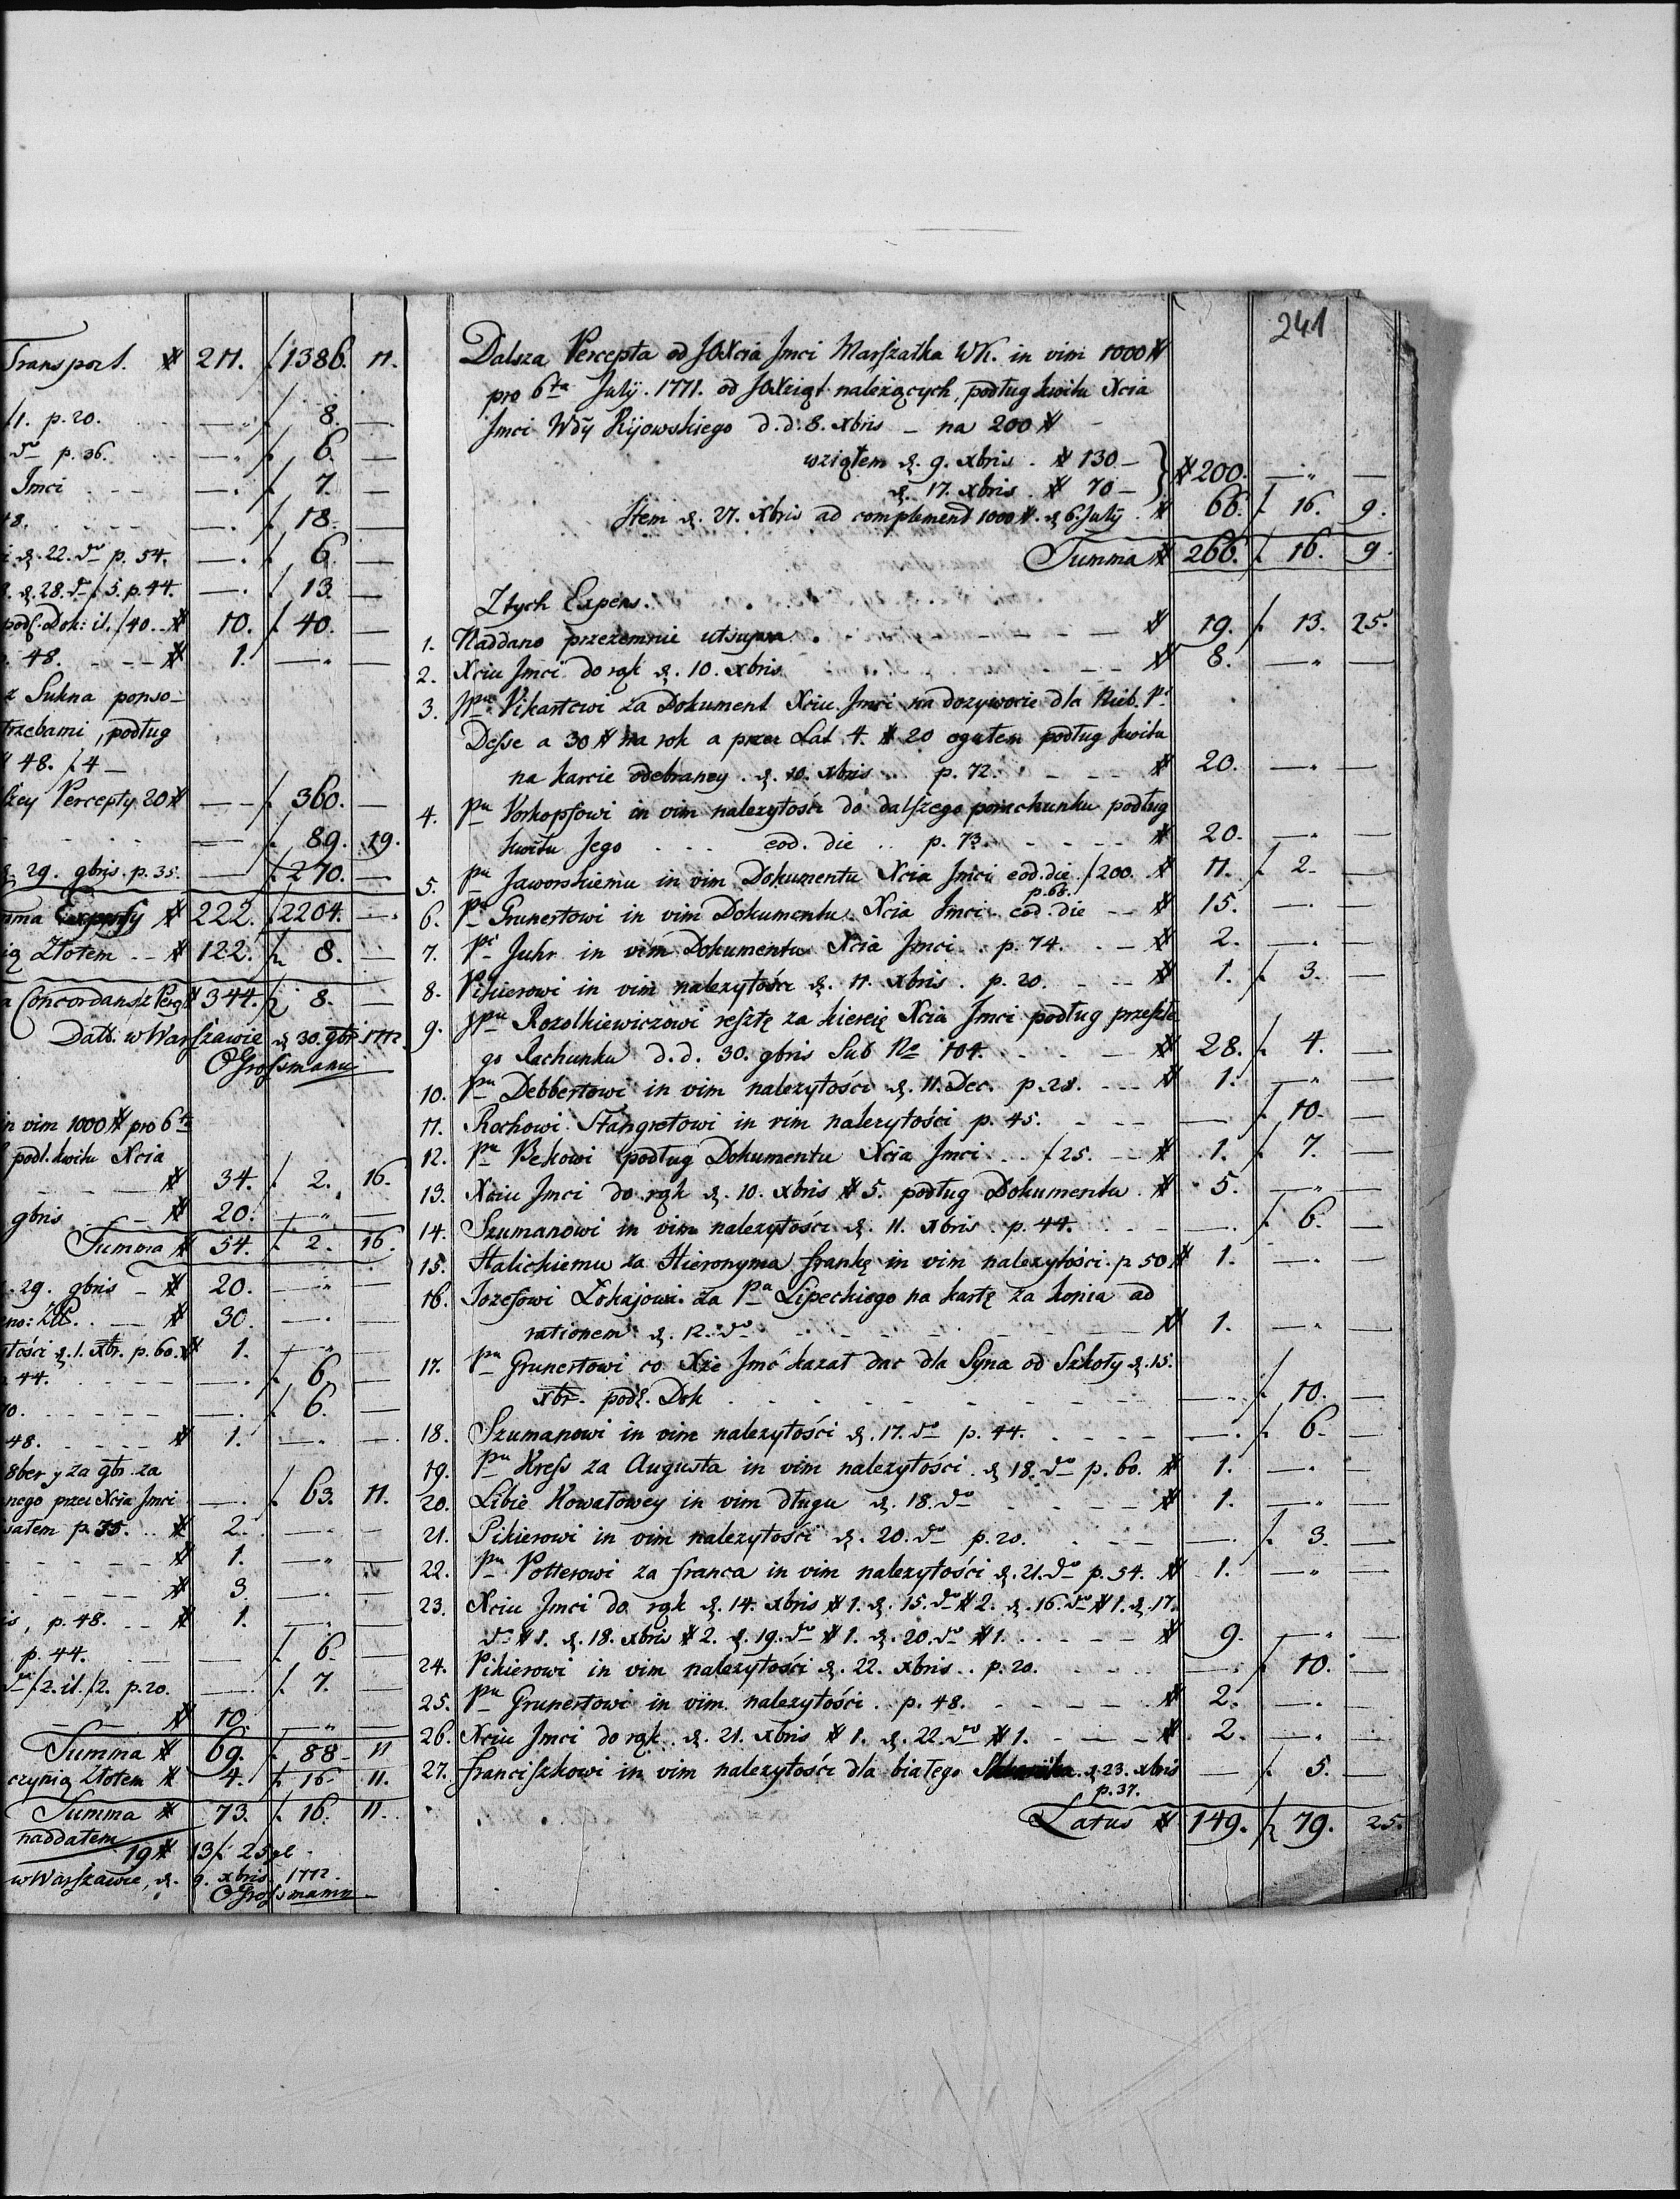 Transport. # 211. f. 1386. 11.
11. p. 20. — f. 8. —
do p. 36. — f. 6. —
Imci — f. 7. —
48. — f. 18. —
i d. 22. do p. 54. — f. 6. —
d. 28. do f 5. p. 44. — f. 13. —
podł. Dok: il. f 40. # 10. f. 40. —
48. # 1. — —
z Sukna ponso-
trzebami, podług
48. f. 4 —
lszey Percepty 20 # — f. 360. —
— f. 89. 19.
d. 29. gbris. p. 35. — f. 270. —
mma Expensy # 222. f. 2204. —
ią Złotem # 122. f. 8. —
a Concordans z Perc # 344. f. 8. —
Datt. w Warszawie d. 30. gbr. 1772
OGrossmann
in vim 1000 # pro 6ta
podł. kwitu Xcia
# 34. f. 2. 16.
gbris # 20. — —
Summa # 54. f. 2. 16.
29. gbris # 20. — —
# 30. — —
tości d. 1. xbr. p. 60. # 1. — —
44. — f. 6. —
70. — f. 6. —
48. # 1. — —
8ber y za gbr. za
nego przez Xcia Jmci — f. 63. 11.
sałem p. 35. # 2. — —
# 1. — —
# 3. — —
is, p. 48. # 1. — —
p. 44. — f. 6. —
f 2. il. f 2. p. 20. — f. 7. —
# 10. — —
Summa # 69. f. 88. 11
czynią Złotem # 4. f. 16. 11.
Summa # 73. f. 16. 11.
naddałem
19 # 13 f. 25 gl
w Warszawie, d. 9. xbris 1772.
OGrossmann
241
Dalsza Percepta od JOXcia Jmci Marszałka WK. in vim 1000 #
pro 6ta July. 1771. od JOXiąt należących, podług kwitu Xcia
Jmci Wdy Kijowskiego d. d. 8. xbris — na 200 #
wziąłem d. 9. xbris. # 130 —
d. 17. xbris. # 70 — } # 200. — —
Item d. 27. Xbris ad complement 1000 #. d 6. July # 66. f. 16. 9.
Summa # 266. f. 16. 9.
Z tych Expens.
1. Naddano przezemnie utsupra. # 19. f. 13. 25.
2. Xciu Jmci do rąk d. 10. xbris # 8. — —
3. Jpnu Vikartowi za Dokument Xciu Jmci na dozywocie dla Nieb. Pi
Desse a 30 # na rok a przez Lat 4. # 20 ogułem podług kwitu
na karcie odebraney d. 10. xbris p. 72. # 20. — —
4. Pnu Vorkopfowi in vim należytości do dalszego porachunku podług
kwitu Jego eod. die p. 73. # 20. — —
5. Pnu Jaworskiemu in vim Dokumentu Xcia Jmci eod. die. f 200. # 11. f. 2. —
6. Pnu Grunertowi in vim Dokumentu Xcia Jmci eod. die p. 68. # 15. — —
7. Pi Juhr in vim Dokumentu Xcia Jmci p. 74. # 2. — —
8. Pikierowi in vim należytości d. 11. xbris. p. 20. # 1. f. 3. —
9. Jpnu Rozolkiewiczowi resztę za kiereię Xcia Jmci podług przeszłe
go Rachunku d. d. 30. gbris Sub No 104. # 28. f. 4. —
10. Pnu Debbertowi in vim należytości d. 11. Dec. p. 28. # 1. — —
11. Rochowi Stangretowi in vim należytości p. 45. — f. 10. —
12. Pnu Bekowi podług Dokumentu Xcia Jmci f 25. # 1. f. 7. —
13. Xciu Jmci do rąk d. 10. xbris # 5. podług Dokumentu # 5. — —
14. Szumanowi in vim należytości d. 11. xbris. p. 44. — f. 6. —
15. Halickiemu za Hieronyma frankę in vim należytości. p. 50 # 1. — —
16. Jozefowi Lokajowi za Pa Lipeckiego na kartę za konia ad
rationem d. 12. do # 1. — —
17. Pnu Grunertowi co Xże Jmć kazał dac dla Syna od Szkoły d. 15.
xbr. podł. Dok — f. 10. —
18. Szumanowi in vim należytości d. 17. do p. 44. — f. 6. —
19. Pnu Kress za Augusta in vim należytości d 18. do p. 60. # 1. — —
20. Libie Kowalowey in vim długu d. 18. do # 1. — —
21. Pikierowi in vim należytości d. 20. do p. 20. — f. 3. —
22. Pnu Potterowi za franca in vim należytości d. 21. do p. 54. # 1. — —
23. Xciu Jmci do rąk d. 14. xbris # 1. d. 15. do # 2. d. 16. do # 1. d. 17.
do # 1. d. 18. xbris # 2. d. 19. do # 1. d. 20. do # 1. # 9. — —
24. Pikierowi in vim należytości d. 22. xbris p. 20. — f. 10. —
25. Pnu Grunertowi in vim należytości p. 48. # 2. — —
26. Xciu Jmci do rąk d. 21. xbris # 1. d. 22. do # 1. # 2. — —
27. franciszkowi in vim należytości dla białego d. 23. xbris — f. 5. —
p. 37.
Latus # 149. f. 79. 25.